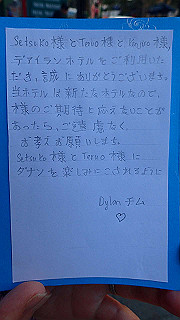 Setsuko 様とTeruo 様と 様,
ディアイランホテルをご利用いただ
だき,誠にありがとうございます。
当ホテルは新たなホテルなので,
様のご期待と応えないことが
あったら,ご遠慮なく
お考えお願いします。
Setsuko 様とTeruo 様に
ダナンを楽しみにこされるように
Dylan チム
♡